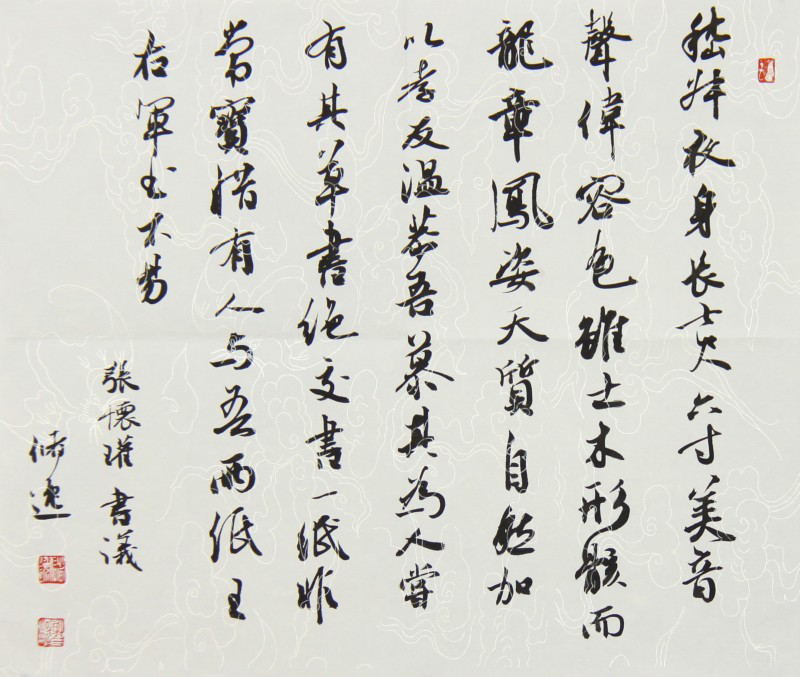 嵇叔夜身長七尺六寸美音
聲偉容色雖土木形骸而
龍章鳳姿天質自然加
以孝友溫恭吾慕其為人嘗
有其草書絕交書一紙非
常寶惜有人与吾兩紙王
右軍書不易
張懷瓘書議